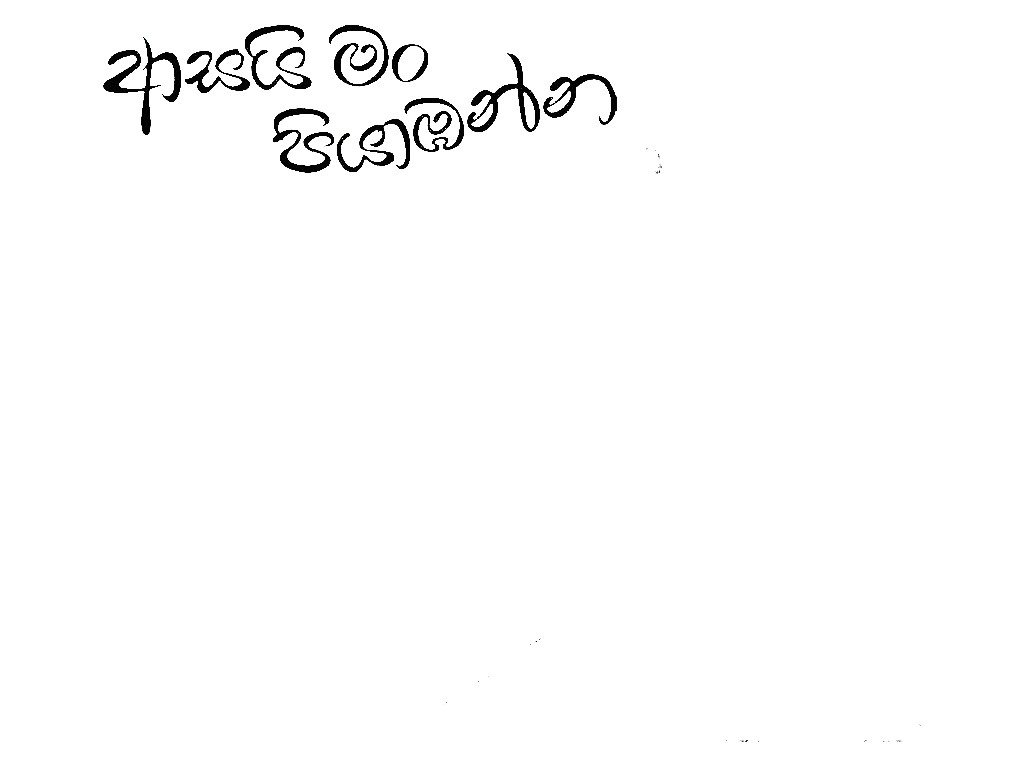 ආසයි මං
පියාඹන්න